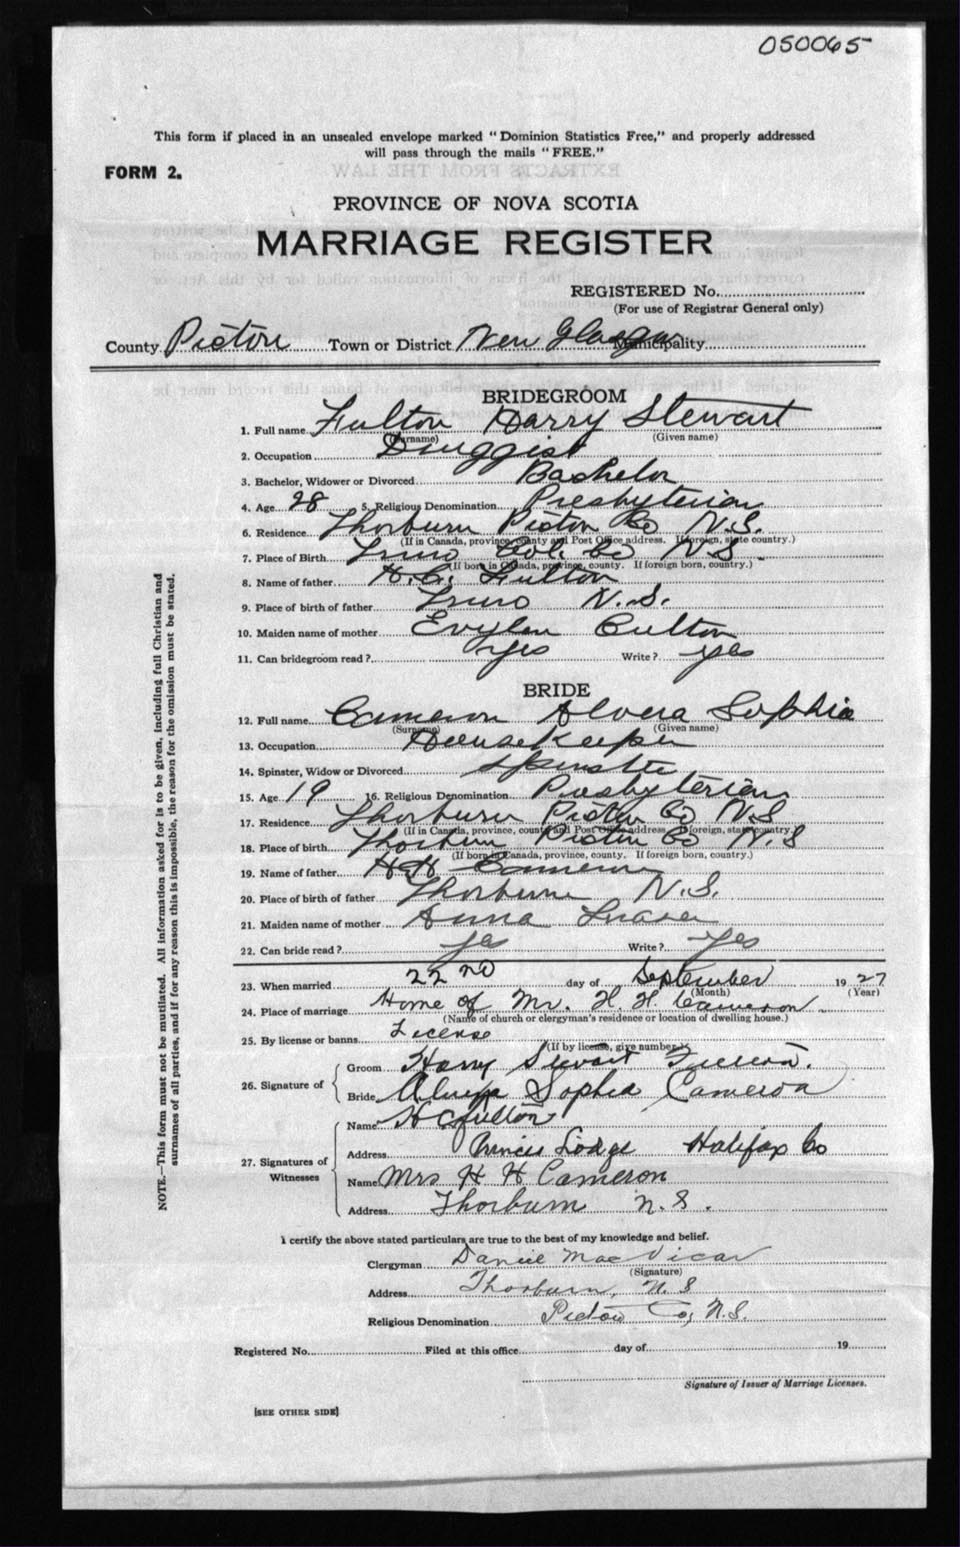 050065
This form if placed in an unsealed envelope marked "Dominion Statistics Free," and properly addressed
will pass through the mails "FREE."
FORM 2.
PROVINCE OF NOVA SCOTIA
MARRIAGE REGISTER
REGISTERED No.
(For use of Registrar General only)
County Pictou Town or District New Glasgow Municipality
BRIDEGROOM
1. Full name Fulton Harry Stewart
(Surname) (Given name)
2. Occupation Druggist
3. Bachelor, Widower or Divorced Bachelor
4. Age 28 5. Religious Denomination Presbyterian
6. Residence Thorburn Pictou Co N.S.
(If in Canada, province, county and Post Office address. If foreign, state country.)
7. Place of Birth Truro Col. Co N.S.
(If born in Canada, province, county. If foreign born, country.)
8. Name of father H.C. Fulton
9. Place of birth of father Truro N.S.
10. Maiden name of mother Evylen Culton
11. Can bridegroom read? yes Write? yes
BRIDE
12. Full name Cameron Alvera Sophia
(Surname) (Given name)
13. Occupation Housekeeper
14. Spinster, Widow or Divorced Spinster
15. Age 19 16. Religious Denomination Presbyterian
17. Residence Thorburn Pictou Co N.S
(If in Canada, province, county and Post Office address. If foreign, state country.)
18. Place of birth Thorburn Pictou Co N.S
(If born in Canada, province, county. If foreign born, country.)
19. Name of father H.H. Cameron
20. Place of birth of father Thorburn N.S.
21. Maiden name of mother Anna Fraser
22. Can bride read? yes Write? yes
23. When married 22nd day of September 1927
(Month) (Year)
24. Place of marriage Home of Mr. H. H. Cameron
(Name of church or clergyman's residence or location of dwelling house.)
25. By license or banns License
(If by license, give number.)
26. Signature of
Groom Harry Stewart Fulton.
Bride Sophia Cameron
27. Signatures of Witnesses
Name H C Fulton
Address Princes Lodge Halifax Co
Name Mrs H H Cameron
Address Thorburn N.S.
I certify the above stated particulars are true to the best of my knowledge and belief.
Clergyman Daniel MacVicar
(Signature)
Address Thorburn, N.S
Religious Denomination Pictou Co, N.S.
Registered No. Filed at this office day of 19
Signature of Issuer of Marriage Licenses.
[SEE OTHER SIDE]
NOTE.—This form must not be mutilated. All information asked for is to be given, including full Christian and
surnames of all parties, and if for any reason this is impossible, the reason for the omission must be stated.